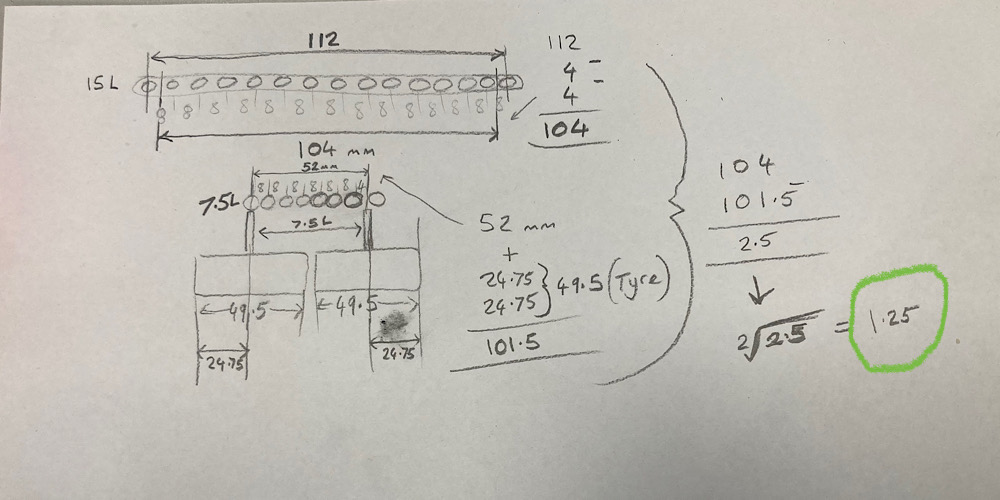 112
15L
8 8 8 8 8 8 8 8 8 8 8 8 8
104 mm
112
4 -
4 -
104
52mm
8 8 8 8 8 8 4
7.5L
7.5L
49.5 49.5
24.75 24.75
52 mm
+
24.75
24.75
} 49.5 (Tyre)
101.5
104
101.5 -
2.5
2√2.5 = 1.25